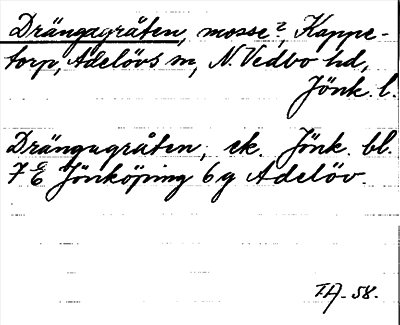 Drängagråten, mosse?, Kappe-
torp, Adelövs sn, N. Vedbo hd,
Jönk. l.
Drängagråten, ek. Jönk. bl.
7 E Jönköping 6 g Adelöv.
-58.